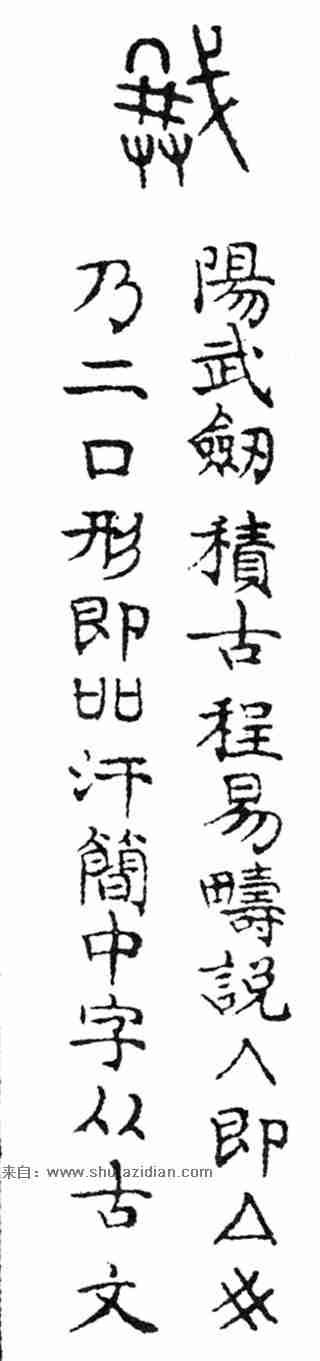 陽武劒積古程易疇説人即△
乃二口形即𠙵𠙵汗簡中字从古文
来自：www.shufazidian.com